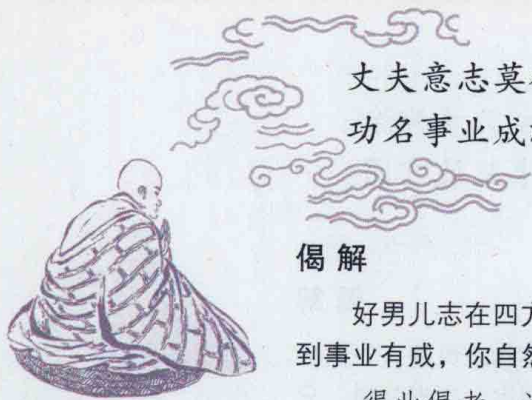 丈夫意志莫
功名事业成
偈解
好男儿志在四方
到事业有成，你自然
得此偈者